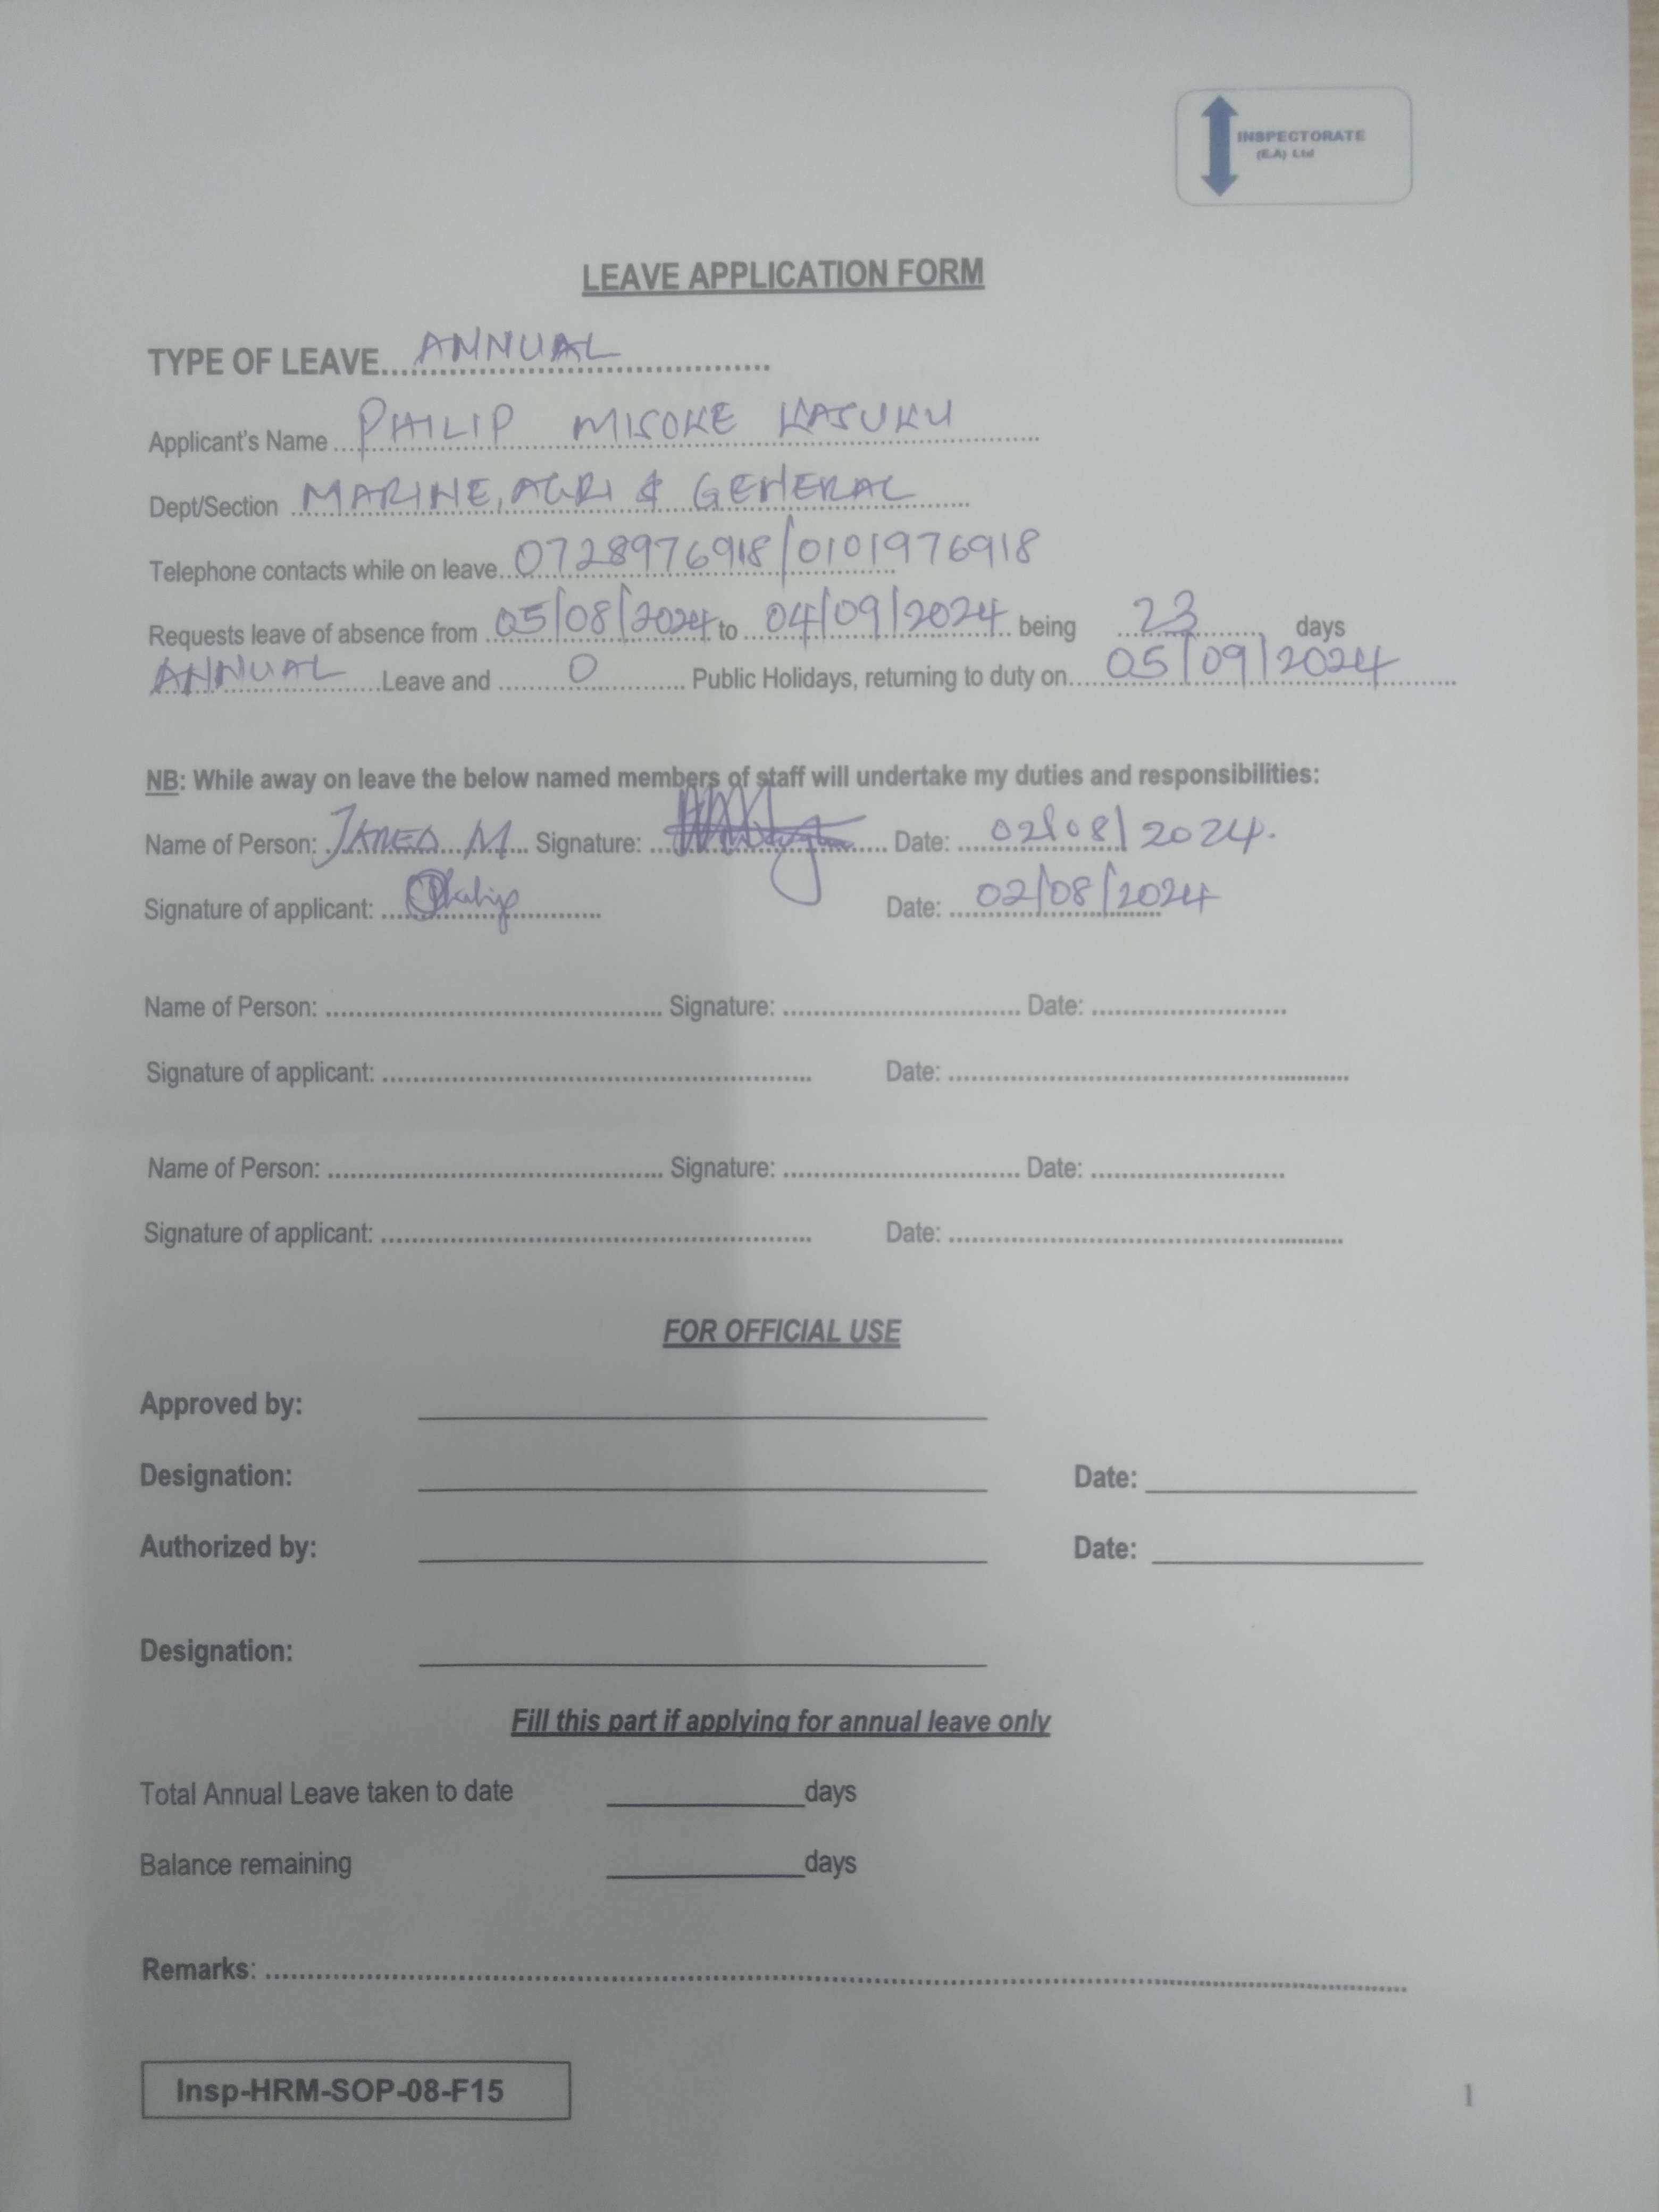 INSPECTORATE
(E.A) Ltd
LEAVE APPLICATION FORM
TYPE OF LEAVE....ANNUAL....
Applicant's Name ....PHILIP MISOKE KASUKU....
Dept/Section ....MARINE, AGRI & GENERAL....
Telephone contacts while on leave....0728976918/0101976918
Requests leave of absence from ....05/08/2024 to ....04/09/2024.... being ....23.... days
ANNUAL....Leave and ....0.... Public Holidays, returning to duty on....05/09/2024....
NB: While away on leave the below named members of staff will undertake my duties and responsibilities:
Name of Person: JARED M.... Signature: .... Date: ....02/08/2024.
Signature of applicant: .... Date: ....02/08/2024
Name of Person: .... Signature: .... Date: ....
Signature of applicant: .... Date: ....
Name of Person: .... Signature: .... Date: ....
Signature of applicant: .... Date: ....
FOR OFFICIAL USE
Approved by: ____
Designation: ____ Date: ____
Authorized by: ____ Date: ____
Designation: ____
Fill this part if applying for annual leave only
Total Annual Leave taken to date ____days
Balance remaining ____days
Remarks: ....
Insp-HRM-SOP-08-F15
1